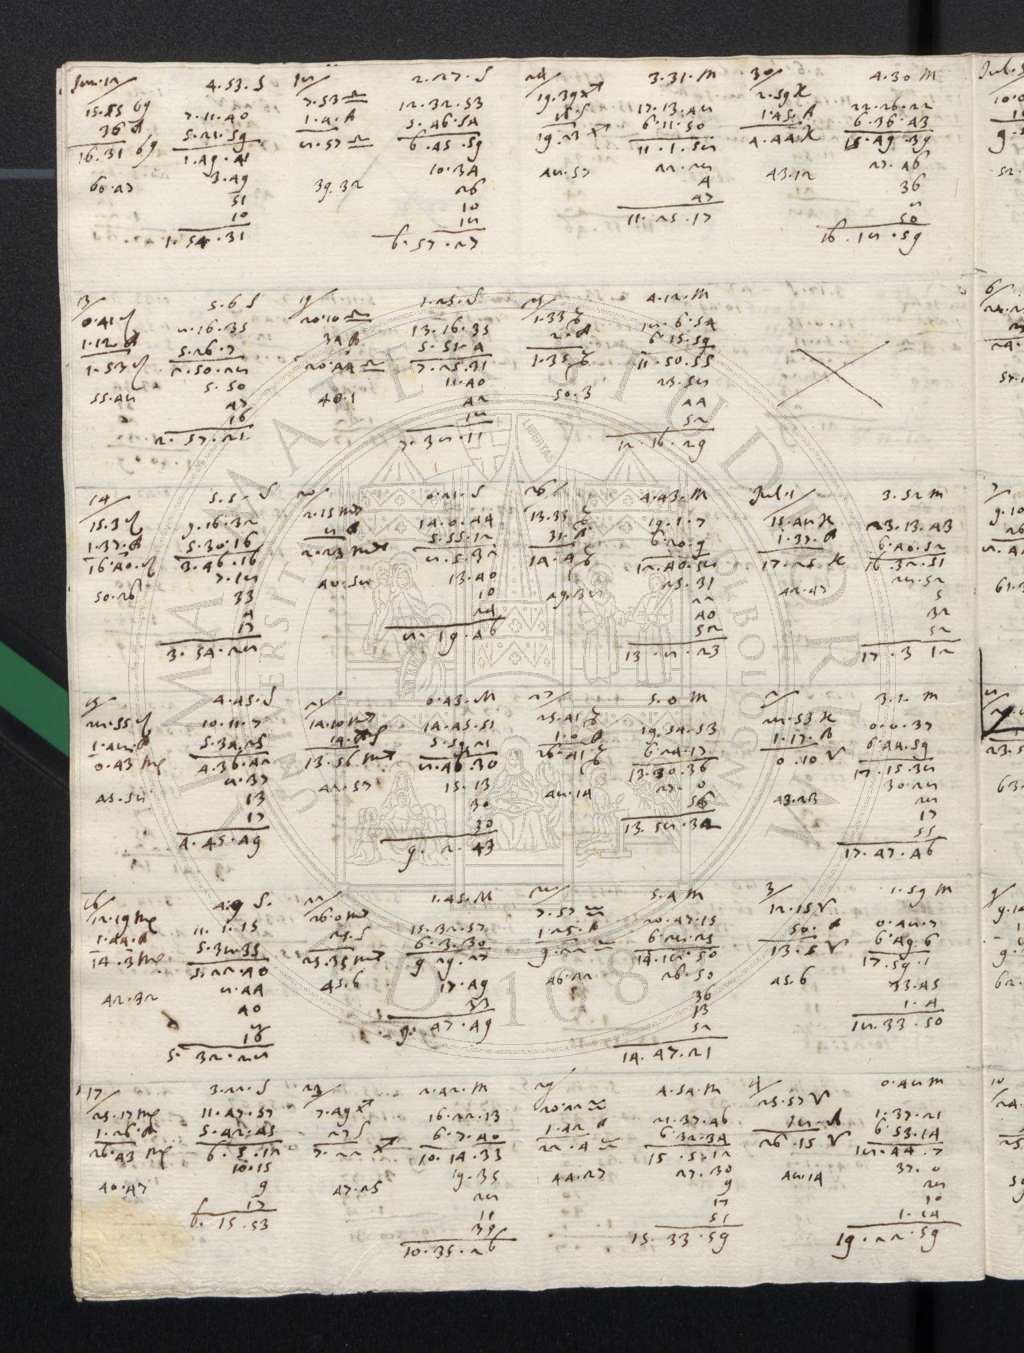 Jun. 12 4.53.S
15.55
36
16.31
7.11.40
5.21.59
1.49.41
3.49
51
10
1.54.31
60.47
18 2.27.S
7.53 ♎
1.4
8.57 ♎
12.32.53
5.46.54
6.45.59
10.34
26
10
18
6.57.27
39.32
24 3.31.M
19.39 ♐
16.S
19.23 ♐
17.13.48
6.11.50
11.1.58
22.28
4
47
11.25.17
48.57
30 4.30 M
2.59 ♓
1.45
4.44 ♓
22.26.22
6.36.43
15.49.39
27.46
36
8
50
16.18.59
43.12
13 5.6 S
0.41 ♌
1.12
1.53 ♌
8.16.35
5.26.7
2.50.28
5.50
47
16
2.57.21
55.48
19 1.25.S
20.10 ♎
34
20.44 ♎
13.16.35
5.51.4
7.25.31
11.40
42
18
7.38.11
40.1
25 4.12.M
1.33 ♑
2
1.35 ♑
18.6.54
6.15.59
11.50.55
23.58
44
52
12.16.29
50.3
14 5.5.S
15.3 ♌
1.37
16.40 ♌
9.16.32
5.30.16
3.46.16
7.18
33
4
17
3.54.28
50.26
20 0.21.S
2.15 ♏
8
2.23 ♏
14.0.44
5.55.12
8.5.32
13.40
10
24
8.19.46
40.58
26 4.43.M
13.33 ♑
31
14.4 ♑
19.1.7
6.20.9
12.40.58
25.31
22
40
52
13.8.23
49.38
Jul.1 3.52 M
15.48 ♓
1.37
17.25 ♓
23.13.43
6.40.52
16.32.51
28.52
5
32
52
17.3 12
42.47
15 4.45.S
28.55 ♌
1.48
0.43 ♍
10.11.7
5.34.25
4.36.42
8.37
13
17
4.45.49
45.58
21 0.43.M
14.10 ♏
14.S
13.56 ♏
14.45.51
5.59.21
8.46.30
15.13
30
30
9.2.43
42.57
27 5.0 M
25.41 ♑
1.0
26.41 ♑
19.54.53
6.24.17
13.30.36
27.0
58
13.58.34
48.14
2 3.1.M
28.53 ♓
1.17
0.10 ♈
0.0.37
6.44.59
17.15.38
30.28
28
17
55
17.47.46
43.23
16 4.9 S.
12.19 ♍
1.44
14.3 ♍
11.1.15
5.38.35
5.22.40
8.44
40
8
16
5.32.28
42.32
22 1.45.M
26.0 ♏
25.S
25.35 ♏
15.32.57
6.3.30
9.29.27
17.49
33
9.47.49
45.6
28 5.4 M
7.57 ♒
1.25
9.22 ♒
20.47.15
6.28.25
14.18.50
26.50
36
13
52
14.47.21
46.22
3 1.59 M
12.15 ♈
50
13.5 ♈
0.48.7
6.49.6
17.59.1
33.45
1.4
18.33.50
45.6
17 3.22.S
25.17 ♍
1.26
26.43 ♍
11.47.57
5.42.45
6.5.12
10.15
9
17
6.15.53
40.47
23 2.42.M
7.49 ♐
27 S
7.22 ♐
16.22.13
6.7.40
10.14.33
19.35
28
11
39
10.35.26
47.25
29 4.54.M
20.22 ♒
1.42
22.4 ♒
21.37.46
6.32.34
15.5.12
27.30
9
17
51
15.33.59
44.27
4 0.48 M
25.57 ♈
18
26.15 ♈
1.37.21
6.53.14
18.44.7
37.0
28
10
1.14
19.22.59
48.14